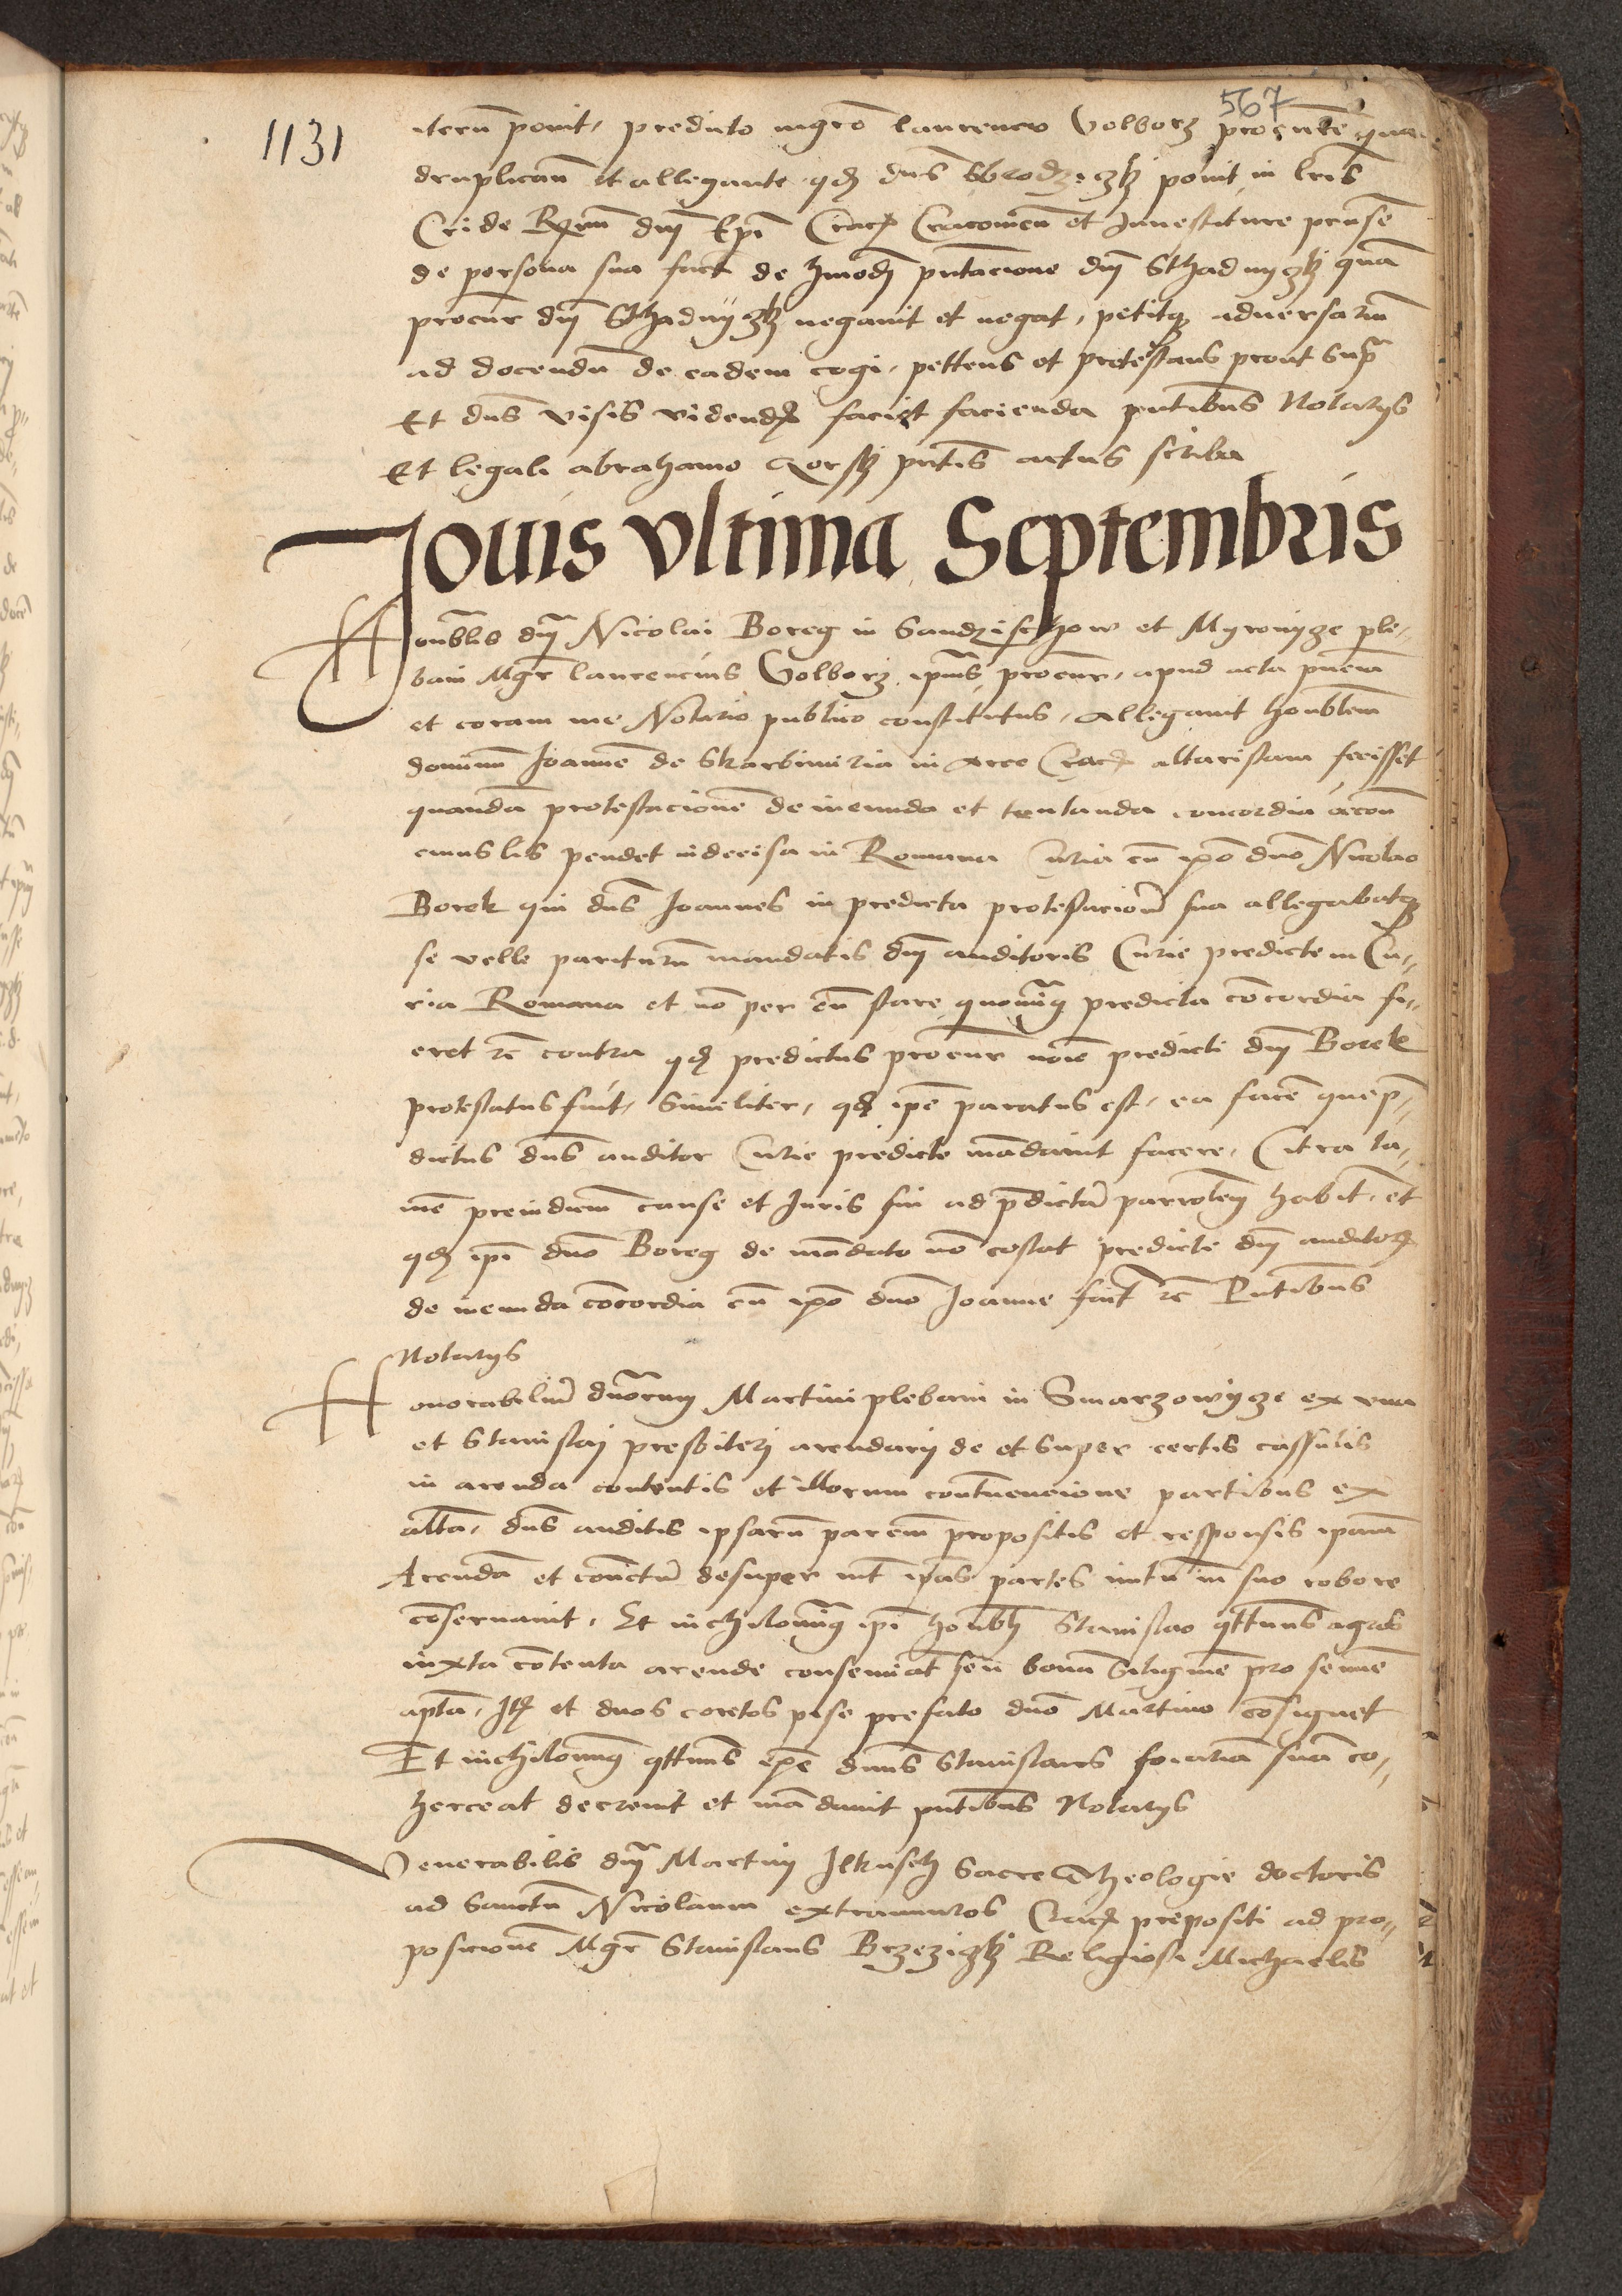 567
1131
iterum ponit, predicto mgro laurencio Volborz procurte qua
druplicam et allegante qd dns Wrodziczkj ponit in lris
Cride Rmi dnj Epi Crac Cracovien et Investiture pnse
de persona sua fact de hmodj pntacione dnj Sthadnyczkj quam
procur dnj Sthadnyczkj negavit et negat, petitq adversarium
ad docendum de eadem cogi, pettens et protestans prout supra
Et dns visis videndis facit facienda pntibus Notarys
Et legali abrahamo Gorskj pntis actus scriba
Jovis ultima Septembris
Honblis dnj Nicolai Boreg in Sandzischow et Myronyze ple-
bani Mgr laurencius Volborz, ipius procur, apud acta pncia
et coram me Notario publico constitutus, Allegavit honblem
dominum Joannem de Skarbimiria in Arce Crac altaristam fecisset
quandam protestacionem de ineunda et tentanda concordia
cuius lis pendet indecisa in Romana Curia cum ipo dno Nicolao
Borek qui dns Joannes in predicta protestacione sua allegabatq
se velle pariturum mandatis dnj auditoris Curie predicte in Cu-
ria Romana et non per eum stare quominus predicta concordia fi-
eret etc contra qd predictus procur noie predicti dnj Borek
protestatus fuit, Similiter, qd ipe paratus est, ea facere que p-
dictus dns auditor Curie predicte mandavit facere, Citra ta-
men preiudicium cause et Iuris sui ad pdictam parrolem habit, et
qd ipi dno Boreg de mandato non costat predicte dnj auditor
de ineunda concordia cum ipo dno Joanne fact etc Pntibus
Notarys
Honorabilium dnorum Martini plebani in Smarzowycze ex una
et Stanislaj presbiteri arendarij de et super certis cassulis
in arenda contentis et illorum contravencione partibus ex
altera, dns auditis ipsarum parcium propositis et responsis ipam
Arendam et contractum desuper int ipas partes initum in suo robore
conservavit, Et nichilominus ipi honblj Stanislao qttenus agros
iuxta contenta arende conseminat seu bonam siligine pro semine
aptam, Itj et duos coretos pise prefato dno Martino consignet
Et nichilominus qttenus ipe dnus Stanislaus focariam suam co-
herceat decrevit et mandavit pntibus Notarys
Venerabilis dnj Martinj Ilkusch Sacre Theologie doctoris
ad Sanctum Nicolaum extramuros Crac prepositi ad pro-
posicionem Mgr Stanislaus Brzeziczkj Religiosi Michaelis